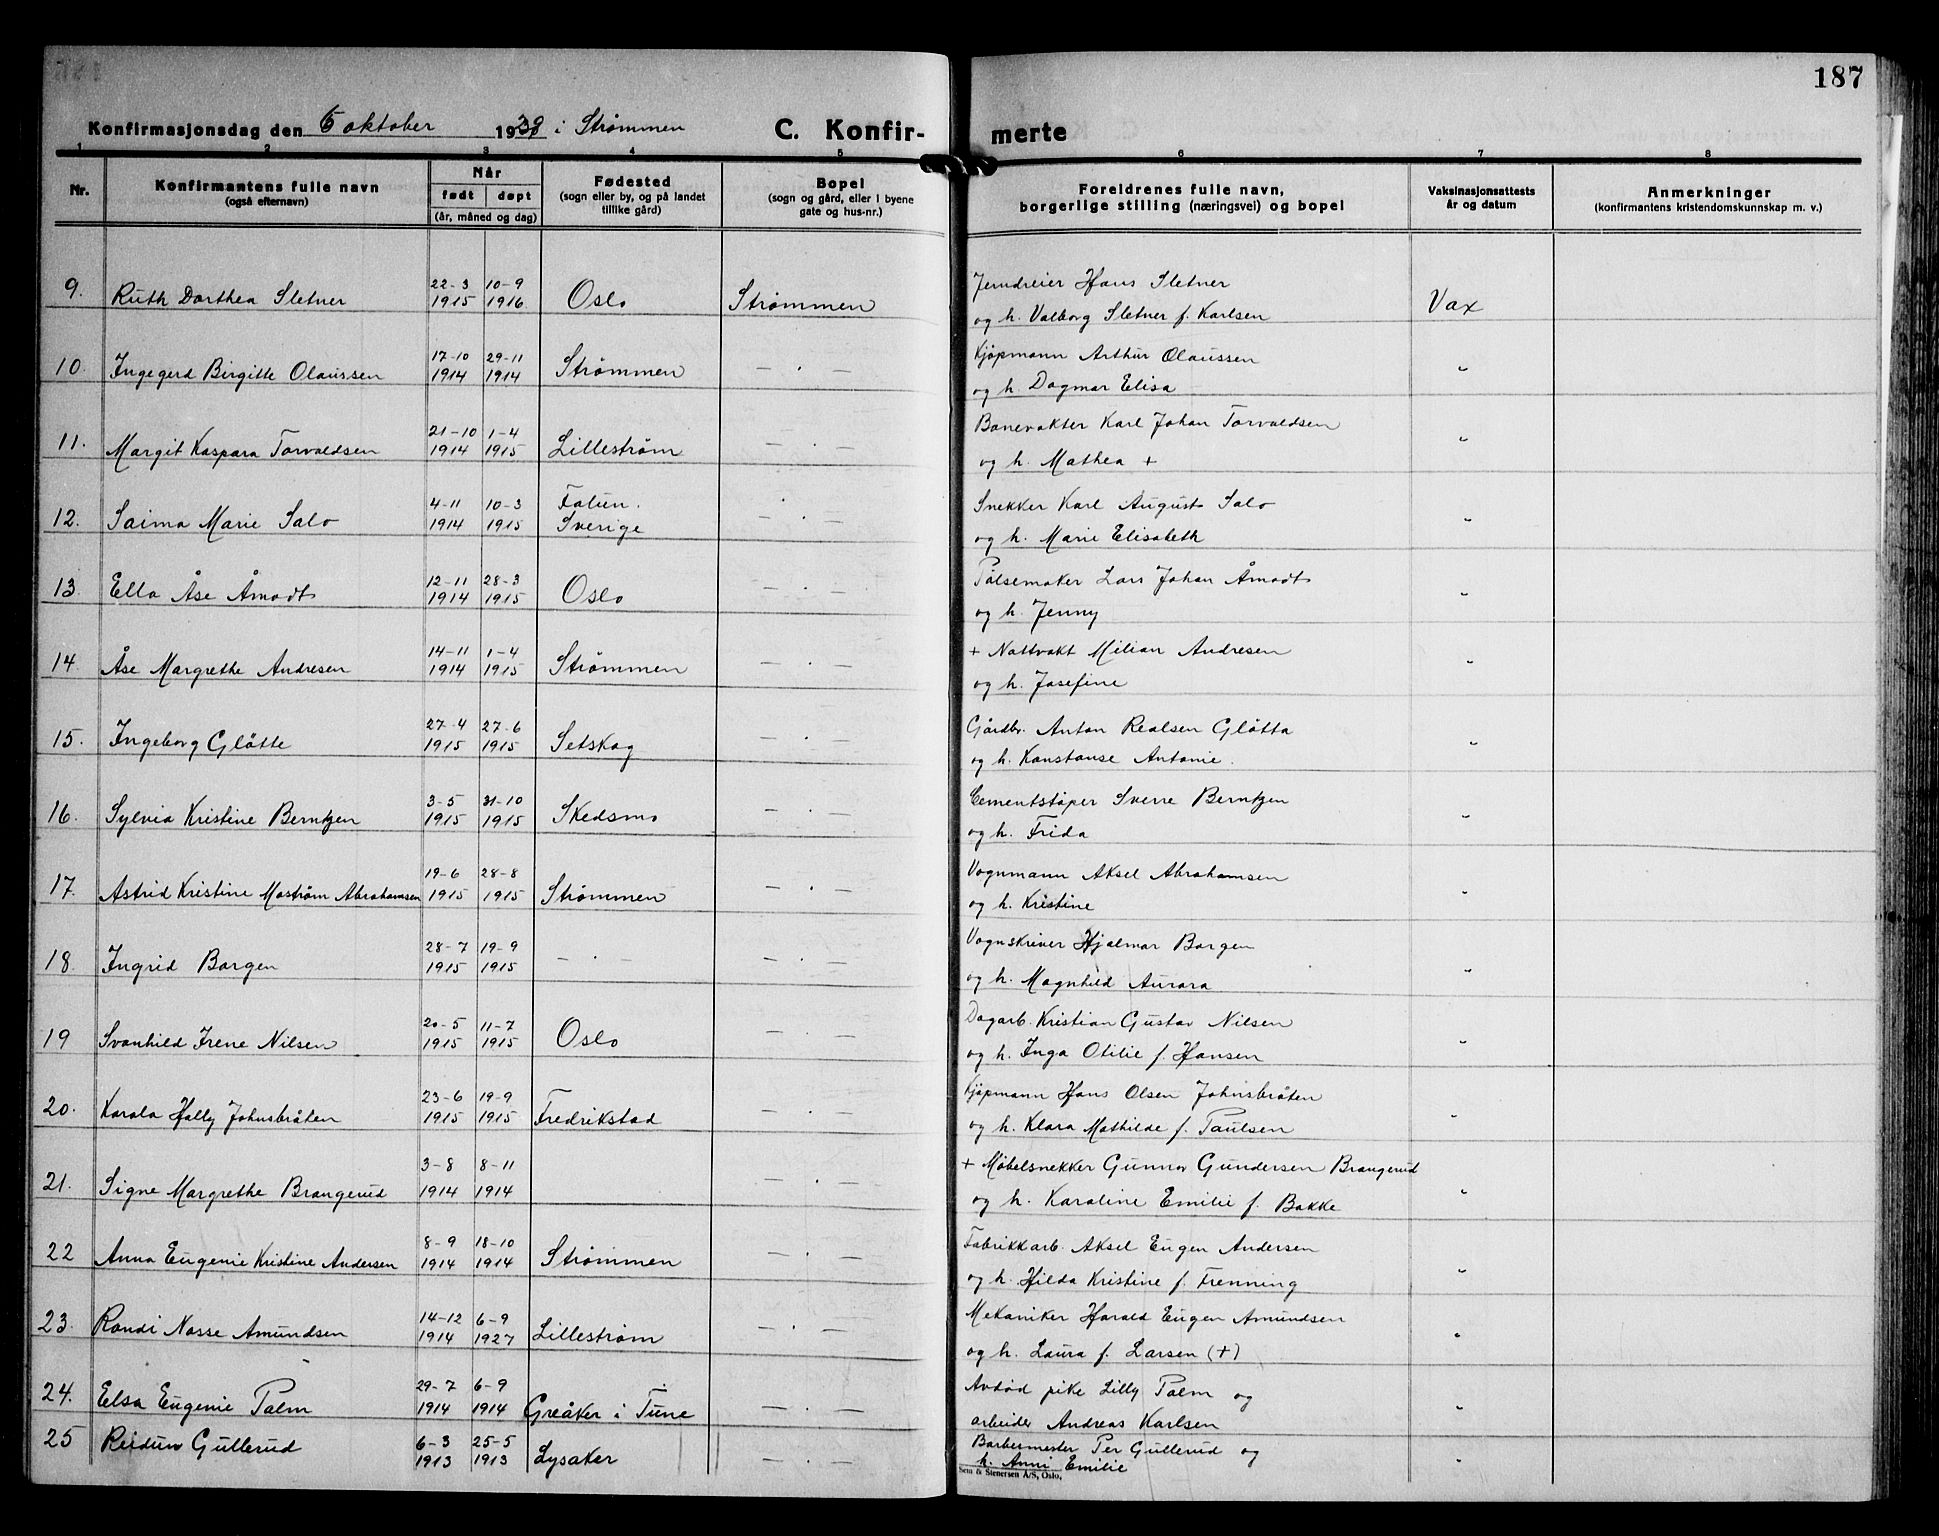 187
Konfirmasjonsdag den 6 oktober 1929 i Strømmen C. Konfir- merte
1 2 3 4 5 6 7 8
Nr. Konfirmantens fulle navn (også efternavn) Når født døpt (år, måned og dag) Fødested (sogn eller by, og på landet tillike gård) Bopel (sogn og gård, eller i byene gate og hus-nr.) Foreldrenes fulle navn, borgerlige stilling (næringsvei) og bopel Vaksinasjonsattests år og datum Anmerkninger (konfirmantens kristendomskunnskap m. v.)
22-3 10-9 Jerndreier Hans Sletner
9. Ruth Dorthea Sletner 1915 1916 Oslo Strømmen og h. Valborg Sletner f. Karlsen Vax
17-10 29-11 Kjøpmann Arthur Olaussen
10. Ingegerd Birgitte Olaussen 1914 1914 Strømmen — . — og h. Dagmar Elisa "
21-10 1-4 Banevakter Karl Johan Torvaldsen
11. Margit Kaspara Torvaldsen 1914 1915 Lillestrøm — . — og h. Mathea + "
4-11 10-3 Falun. Snekker Karl August Salo
12. Saima Marie Salo 1914 1915 Sverige — . — og h. Marie Elisabeth "
12-11 28-3 Pølsemaker Lars Johan Åmodt
13 Ella Åse Åmodt 1914 1915 Oslo — . — og h. Jenny "
14-11 1-4 + Nattvakt Milian Andresen
14 Åse Margrethe Andresen 1914 1915 Strømmen — . — og h. Josefine "
27-4 27-6 Gårdbr. Anton Realsen Gløtta
15. Ingeborg Gløtte 1915 1915 Setskog — . — og h. Konstanse Antonie. "
3-5 31-10 Cementstøper Sverre Berntzen
16. Sylvia Kristine Berntzen 1915 1915 Skedsmo — . — og h. Frida "
19-6 28-8 Vognmann Aksel Abrahamsen
17. Astrid Kristine Moström Abrahamsen 1915 1915 Strømmen — . — og h. Kristine "
28-7 19-9 Vognskriver Hjalmar Borgen
18. Ingrid Borgen 1915 1915 — . — — . — og h. Magnhild Aurora "
20-5 11-7 Dagarb. Kristian Gustav Nilsen
19 Svanhild Irene Nilsen 1915 1915 Oslo — . — og h. Inga Otilie f. Hansen "
23-6 19-9 Kjøpmann Hans Olsen Johnsbråten
20. Karala Hally Johnsbråten 1915 1915 Fredrikstad — . — og h. Klara Mathilde f. Paulsen "
3-8 8-11 + Møbelsnekker Gunnar Gundersen Brangerud
21. Signe Margrethe Brangerud 1914 1914 — . — og h. Karoline Emilie f. Bakke "
8-9 18-10 Fabrikkarb. Aksel Eugen Andersen
22 Anna Eugenie Kristine Andersen 1914 1914 Strømmen — . — og h. Hilda Kristine f. Frenning "
14-12 6-9 Mekaniker Harald Eugen Amundsen
23. Randi Nosse Amundsen 1914 1927 Lillestrøm — . — og h. Laura f. Larsen (+) "
29-7 6-9 Avdød pike Lilly Palm og
24. Elsa Eugenie Palm 1914 1914 Greåker i Tune — . — arbeider Andreas Karlsen "
6-3 25-5 Barbermester Per Gullerud og
25 Reidun Gullerud 1913 1913 Lysaker — . — h. Anni Emilie "
Sem & Stenersen A/S, Oslo.